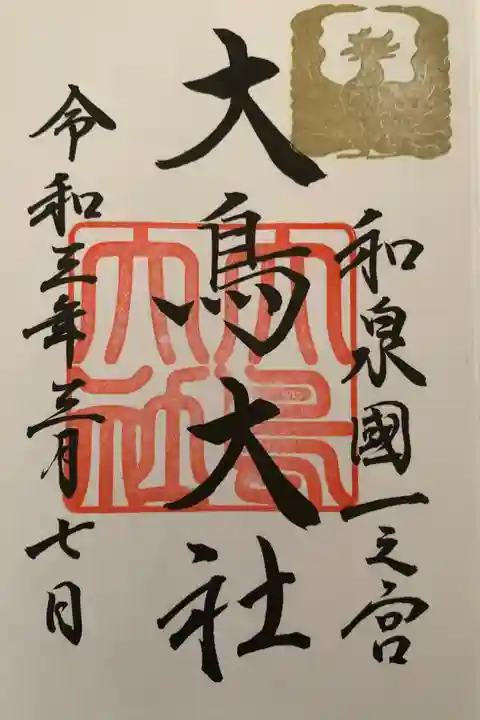 和泉國一之宮
大鳥大社
大鳥大社
令和三年三月七日